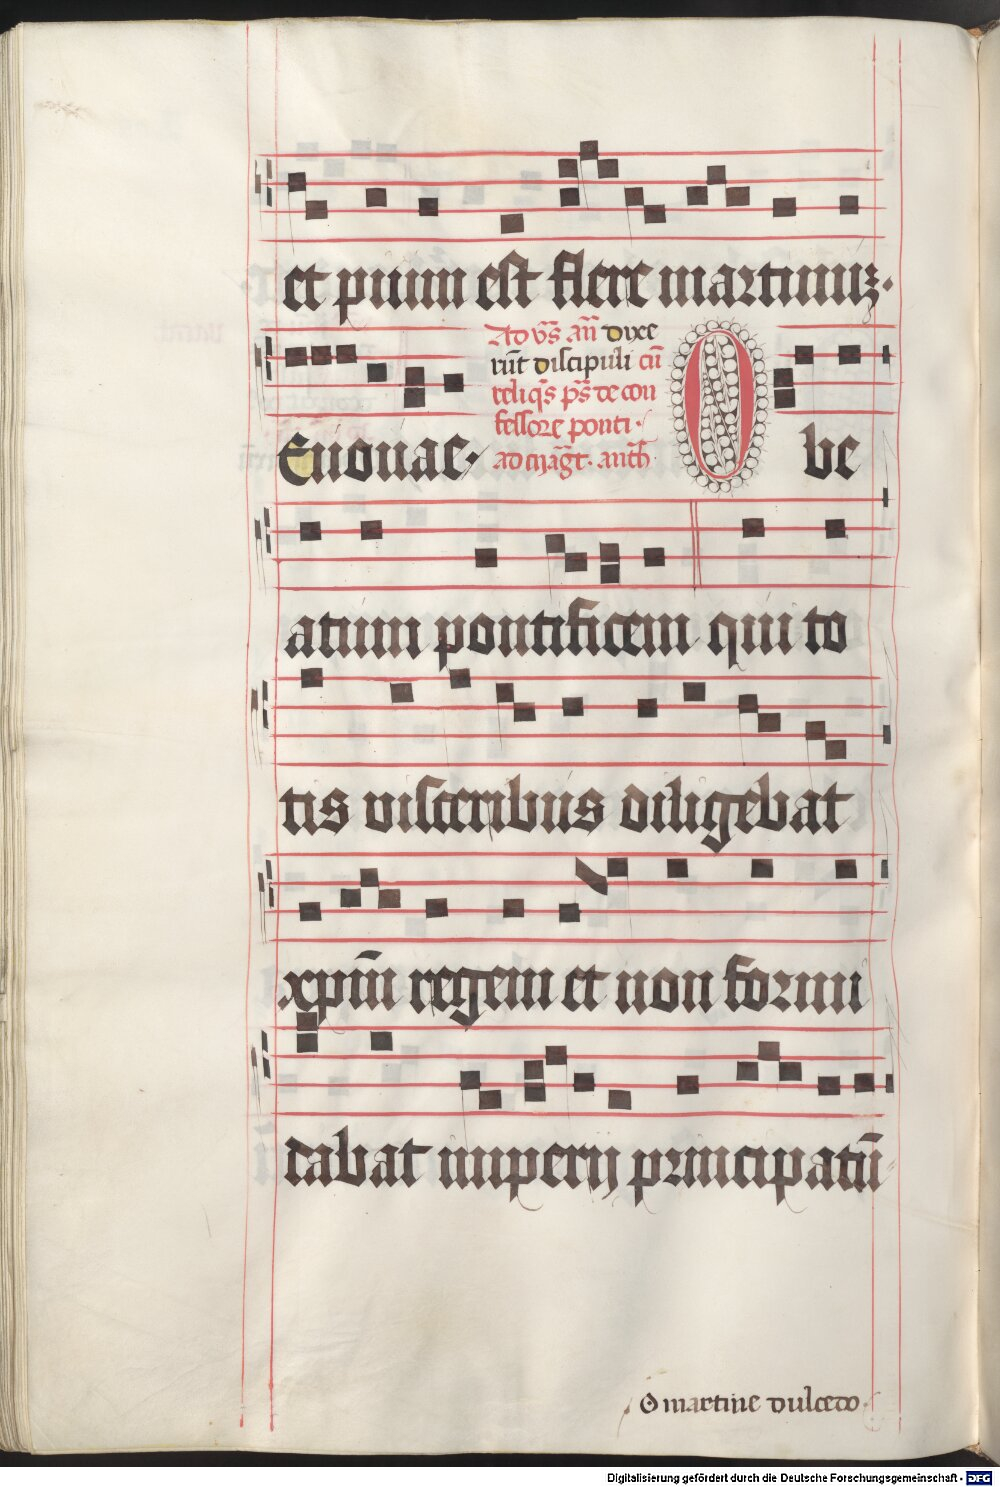 et pium est flere martinuꝫ.
Ad vs̄ an̄ dixe
rūt discipuli cū
reliq̄s ps̄ de con
fessore ponti.
ad magt̄. anth̄
Euouae.
O be
atum pontificem qui to
tis visceribus diligebat
xpm̄ regem et non formi
dabat imperij principatū
O martine dulcedo.
Digitalisierung gefördert durch die Deutsche Forschungsgemeinschaft - DFG